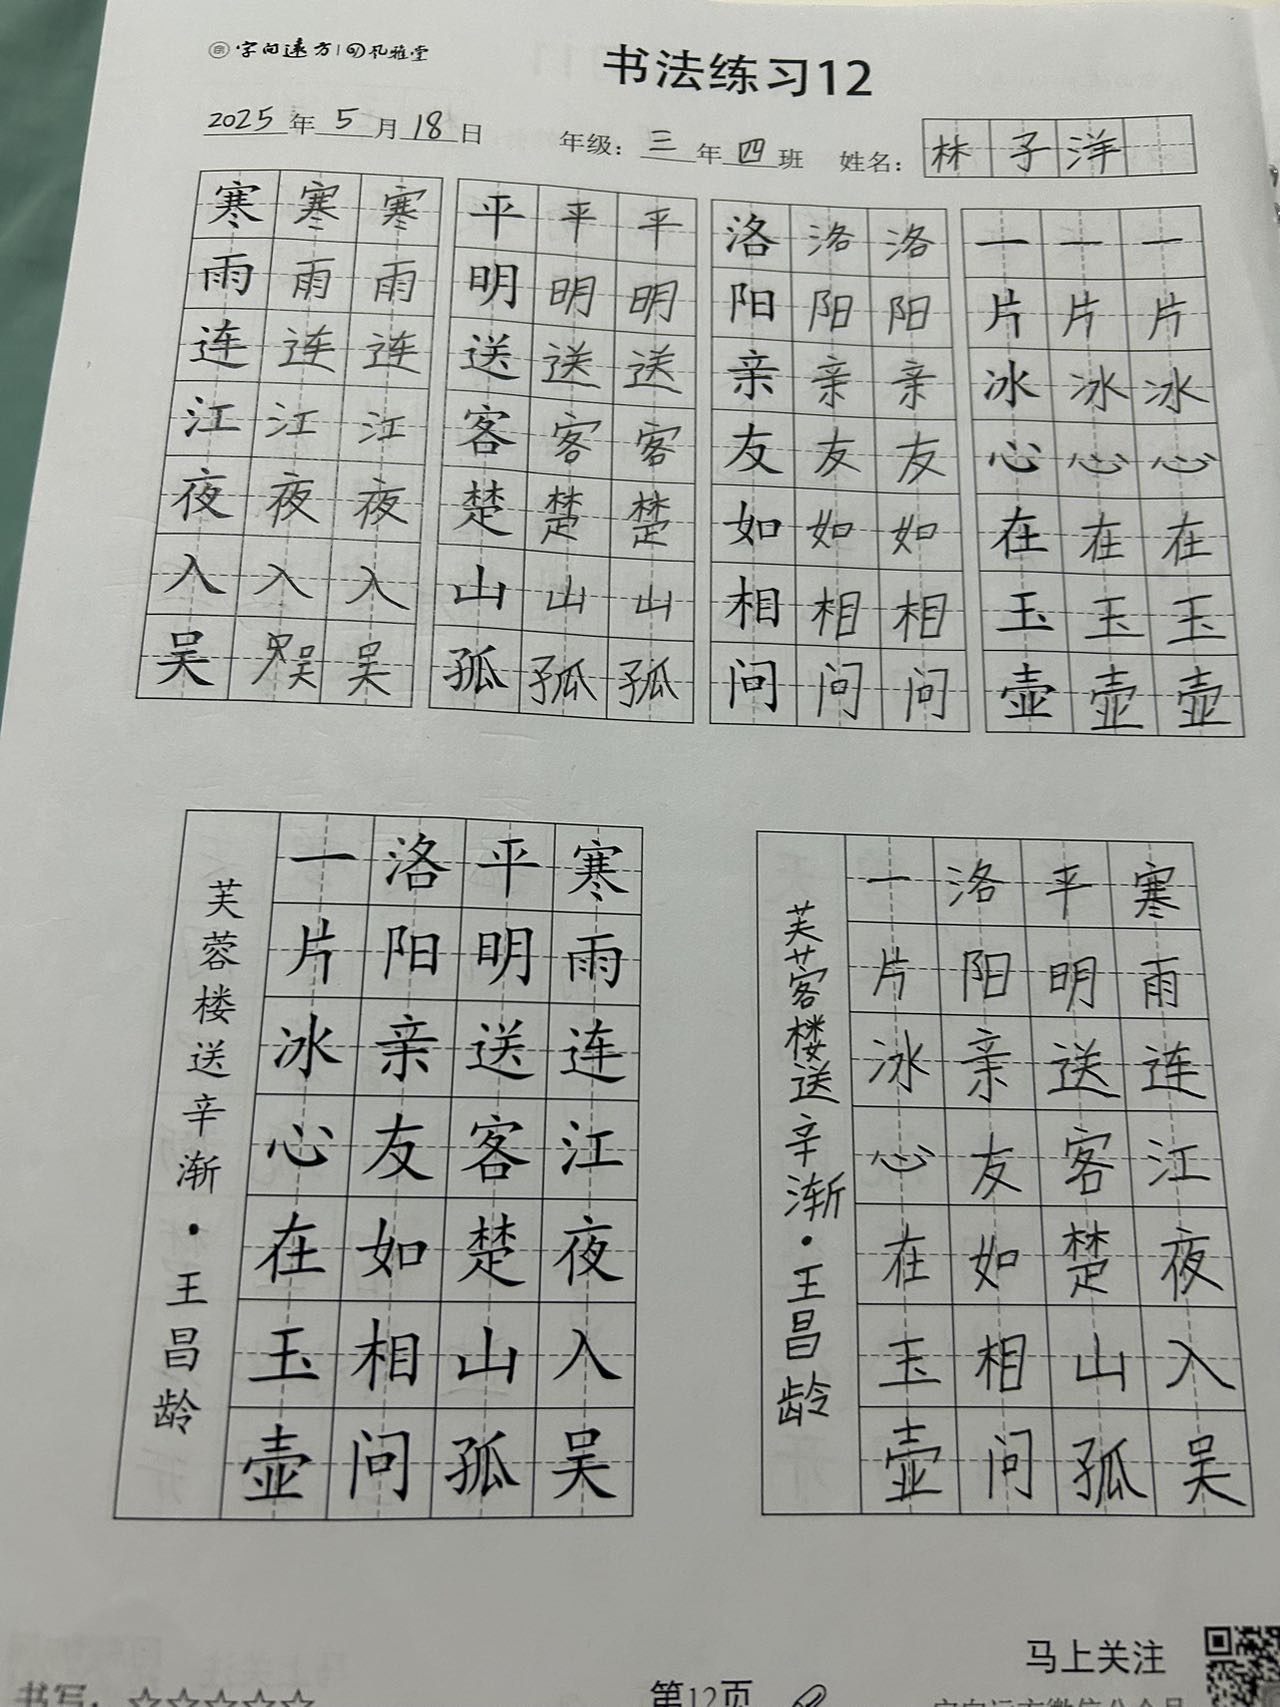 字向遠方 | 孔雅堂
书法练习12
2025年5月18日 年级：三年四班 姓名：林子洋
寒雨连江夜入吴
寒雨连江夜入吴
寒雨连江夜入吴
平明送客楚山孤
平明送客楚山孤
平明送客楚山孤
洛阳亲友如相问
洛阳亲友如相问
洛阳亲友如相问
一片冰心在玉壶
一片冰心在玉壶
一片冰心在玉壶
寒雨连江夜入吴
平明送客楚山孤
洛阳亲友如相问
一片冰心在玉壶
芙蓉楼送辛渐·王昌龄
寒雨连江夜入吴
平明送客楚山孤
洛阳亲友如相问
一片冰心在玉壶
芙蓉楼送辛渐·王昌龄
马上关注
书写：☆☆☆☆☆
第12页